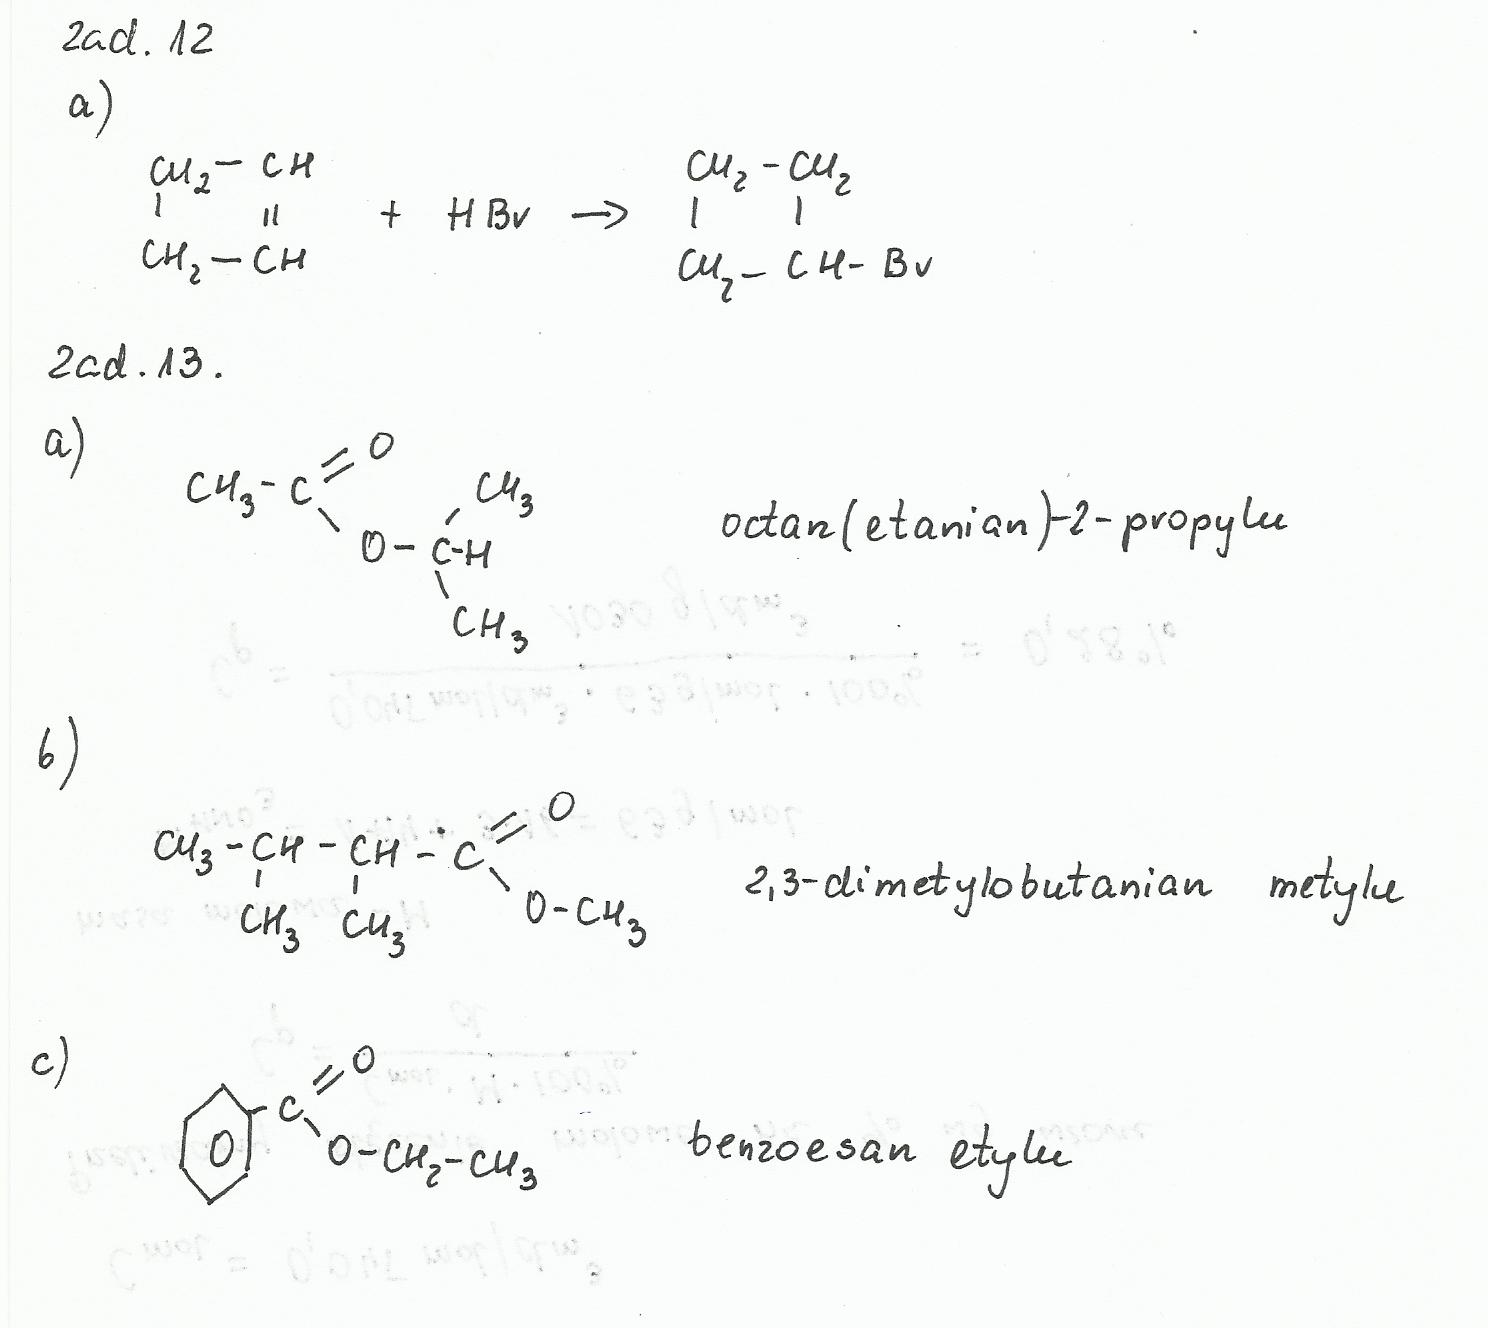 Zad. 12
a)
CH2 - CH CH2 - CH2
| || + HBr → | |
CH2 - CH CH2 - CH - Br
Zad. 13.
a)
O
CH3 - C CH3
O - C-H
CH3
octan(etanian)-2-propylu
b)
O
CH3 - CH - CH - C
CH3 CH3 O-CH3
2,3-dimetylobutanian metylu
c)
O
C
O-CH2-CH3
benzoesan etylu